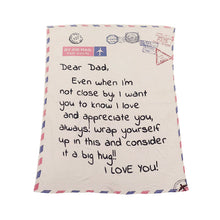 Dear Dad,
Even when I'm
not close by, I want
you to know I love
and appreciate you,
always! Wrap yourself
up in this and consider
it a big hug!!
I LOVE YOU!